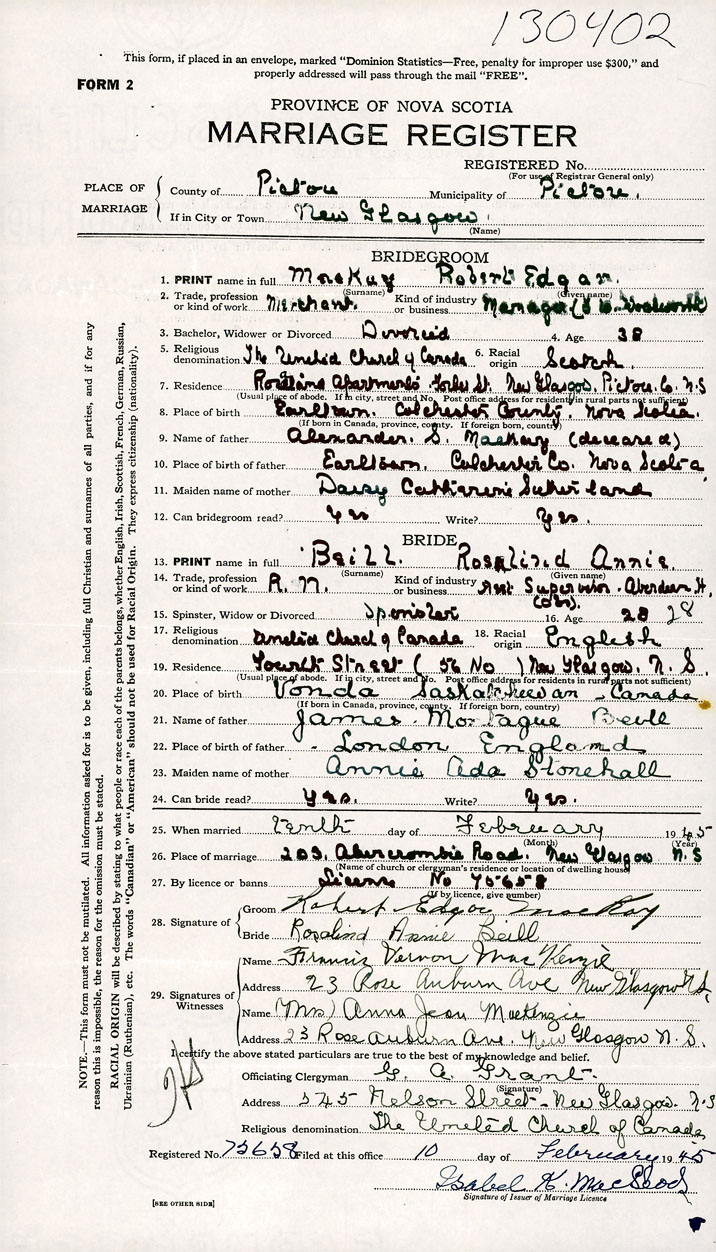 130402
This form, if placed in an envelope, marked "Dominion Statistics—Free, penalty for improper use $300," and
properly addressed will pass through the mail "FREE".
FORM 2
PROVINCE OF NOVA SCOTIA
MARRIAGE REGISTER
REGISTERED No.
(For use of Registrar General only)
PLACE OF MARRIAGE
County of Pictou Municipality of Pictou.
If in City or Town New Glasgow.
(Name)
BRIDEGROOM
1. PRINT name in full MacKay Robert Edgar.
(Surname) (Given name)
2. Trade, profession or kind of work Merchant. Kind of industry or business Manager (F. W. Woolworth
3. Bachelor, Widower or Divorced Divorced 4. Age 38
5. Religious denomination The United Church of Canada 6. Racial origin Scotch.
7. Residence Apartments Forbes St. New Glasgow, Pictou Co. N.S
(Usual place of abode. If in city, street and No. Post office address for residents in rural parts not sufficient)
8. Place of birth Earltown. Colchester County. Nova Scotia.
(If born in Canada, province, county. If foreign born, country)
9. Name of father Alexander. S. MacKay (deceased)
10. Place of birth of father Earltown, Colchester Co. Nova Scotia
11. Maiden name of mother Daisy Catharine Sutherland
12. Can bridegroom read? Yes Write? Yes.
BRIDE
13. PRINT name in full Beill. Rosalind Annie.
(Surname) (Given name)
14. Trade, profession or kind of work R. N. Kind of industry or business Asst Supervisor. Aberdeen H.
(Obs).
15. Spinster, Widow or Divorced Spinster 16. Age 28 28
17. Religious denomination United Church of Canada 18. Racial origin English
19. Residence Fourth Street (56 No) New Glasgow. N. S.
(Usual place of abode. If in city, street and No. Post office address for residents in rural parts not sufficient)
20. Place of birth Vonda Saskatchewan - Canada
(If born in Canada, province, county. If foreign born, country)
21. Name of father James. Montague Beill
22. Place of birth of father - London England
23. Maiden name of mother Annie Ada Stonehall
24. Can bride read? Yes. Write? Yes.
25. When married Tenth day of February 1945
(Month) (Year)
26. Place of marriage 203. Abercrombie Road. New Glasgow N.S
(Name of church or clergyman's residence or location of dwelling house)
27. By licence or banns License No 75658
(If by licence, give number)
28. Signature of
Groom Robert Edgar MacKay
Bride Rosalind Annie Beill
29. Signatures of Witnesses
Name Francis Vernon MacKenzie
Address 23 Rose Auburn Ave New Glasgow N.S.
Name (Mrs) Anna Jean MacKenzie
Address 23 Rose Auburn Ave. New Glasgow N. S.
I certify the above stated particulars are true to the best of my knowledge and belief.
Officiating Clergyman G. A. Grant.
(Signature)
Address 345 Nelson Street - New Glasgow. N.S
Religious denomination The United Church of Canada
Registered No. 75658 Filed at this office 10 day of February 1945
Isabel K. MacLeod
Signature of Issuer of Marriage Licence
[SEE OTHER SIDE]
NOTE.—This form must not be mutilated. All information asked for is to be given, including full Christian and surnames of all parties, and if for any
reason this is impossible, the reason for the omission must be stated.
RACIAL ORIGIN will be described by stating to what people or race each of the parents belongs, whether English, Irish, Scottish, French, German, Russian,
Ukrainian (Ruthenian), etc. The words "Canadian" or "American" should not be used for Racial Origin. They express citizenship (nationality).